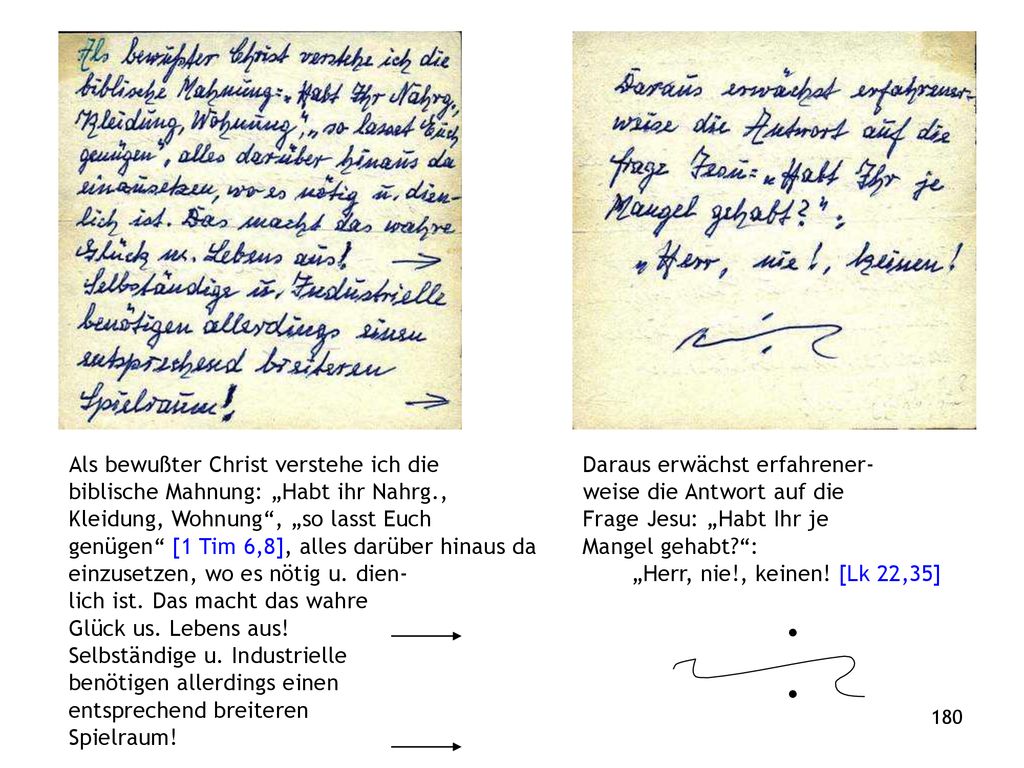 Als bewußter Christ verstehe ich die
biblische Mahnung: „Habt Ihr Nahrg.,
Kleidung, Wohnung“, „so lasset Euch
genügen“, alles darüber hinaus da
einzusetzen, wo es nötig u. dien-
lich ist. Das macht das wahre
Glück us. Lebens aus! →
Selbständige u. Industrielle
benötigen allerdings einen
entsprechend breiteren
Spielraum! →
Daraus erwächst erfahrener-
weise die Antwort auf die
Frage Jesu: „Habt Ihr je
Mangel gehabt?“:
„Herr, nie!, keinen!
Als bewußter Christ verstehe ich die
biblische Mahnung: „Habt ihr Nahrg.,
Kleidung, Wohnung“, „so lasst Euch
genügen“ [1 Tim 6,8], alles darüber hinaus da
einzusetzen, wo es nötig u. dien-
lich ist. Das macht das wahre
Glück us. Lebens aus! →
Selbständige u. Industrielle
benötigen allerdings einen
entsprechend breiteren
Spielraum! →
Daraus erwächst erfahrener-
weise die Antwort auf die
Frage Jesu: „Habt Ihr je
Mangel gehabt?“:
„Herr, nie!, keinen! [Lk 22,35]
180